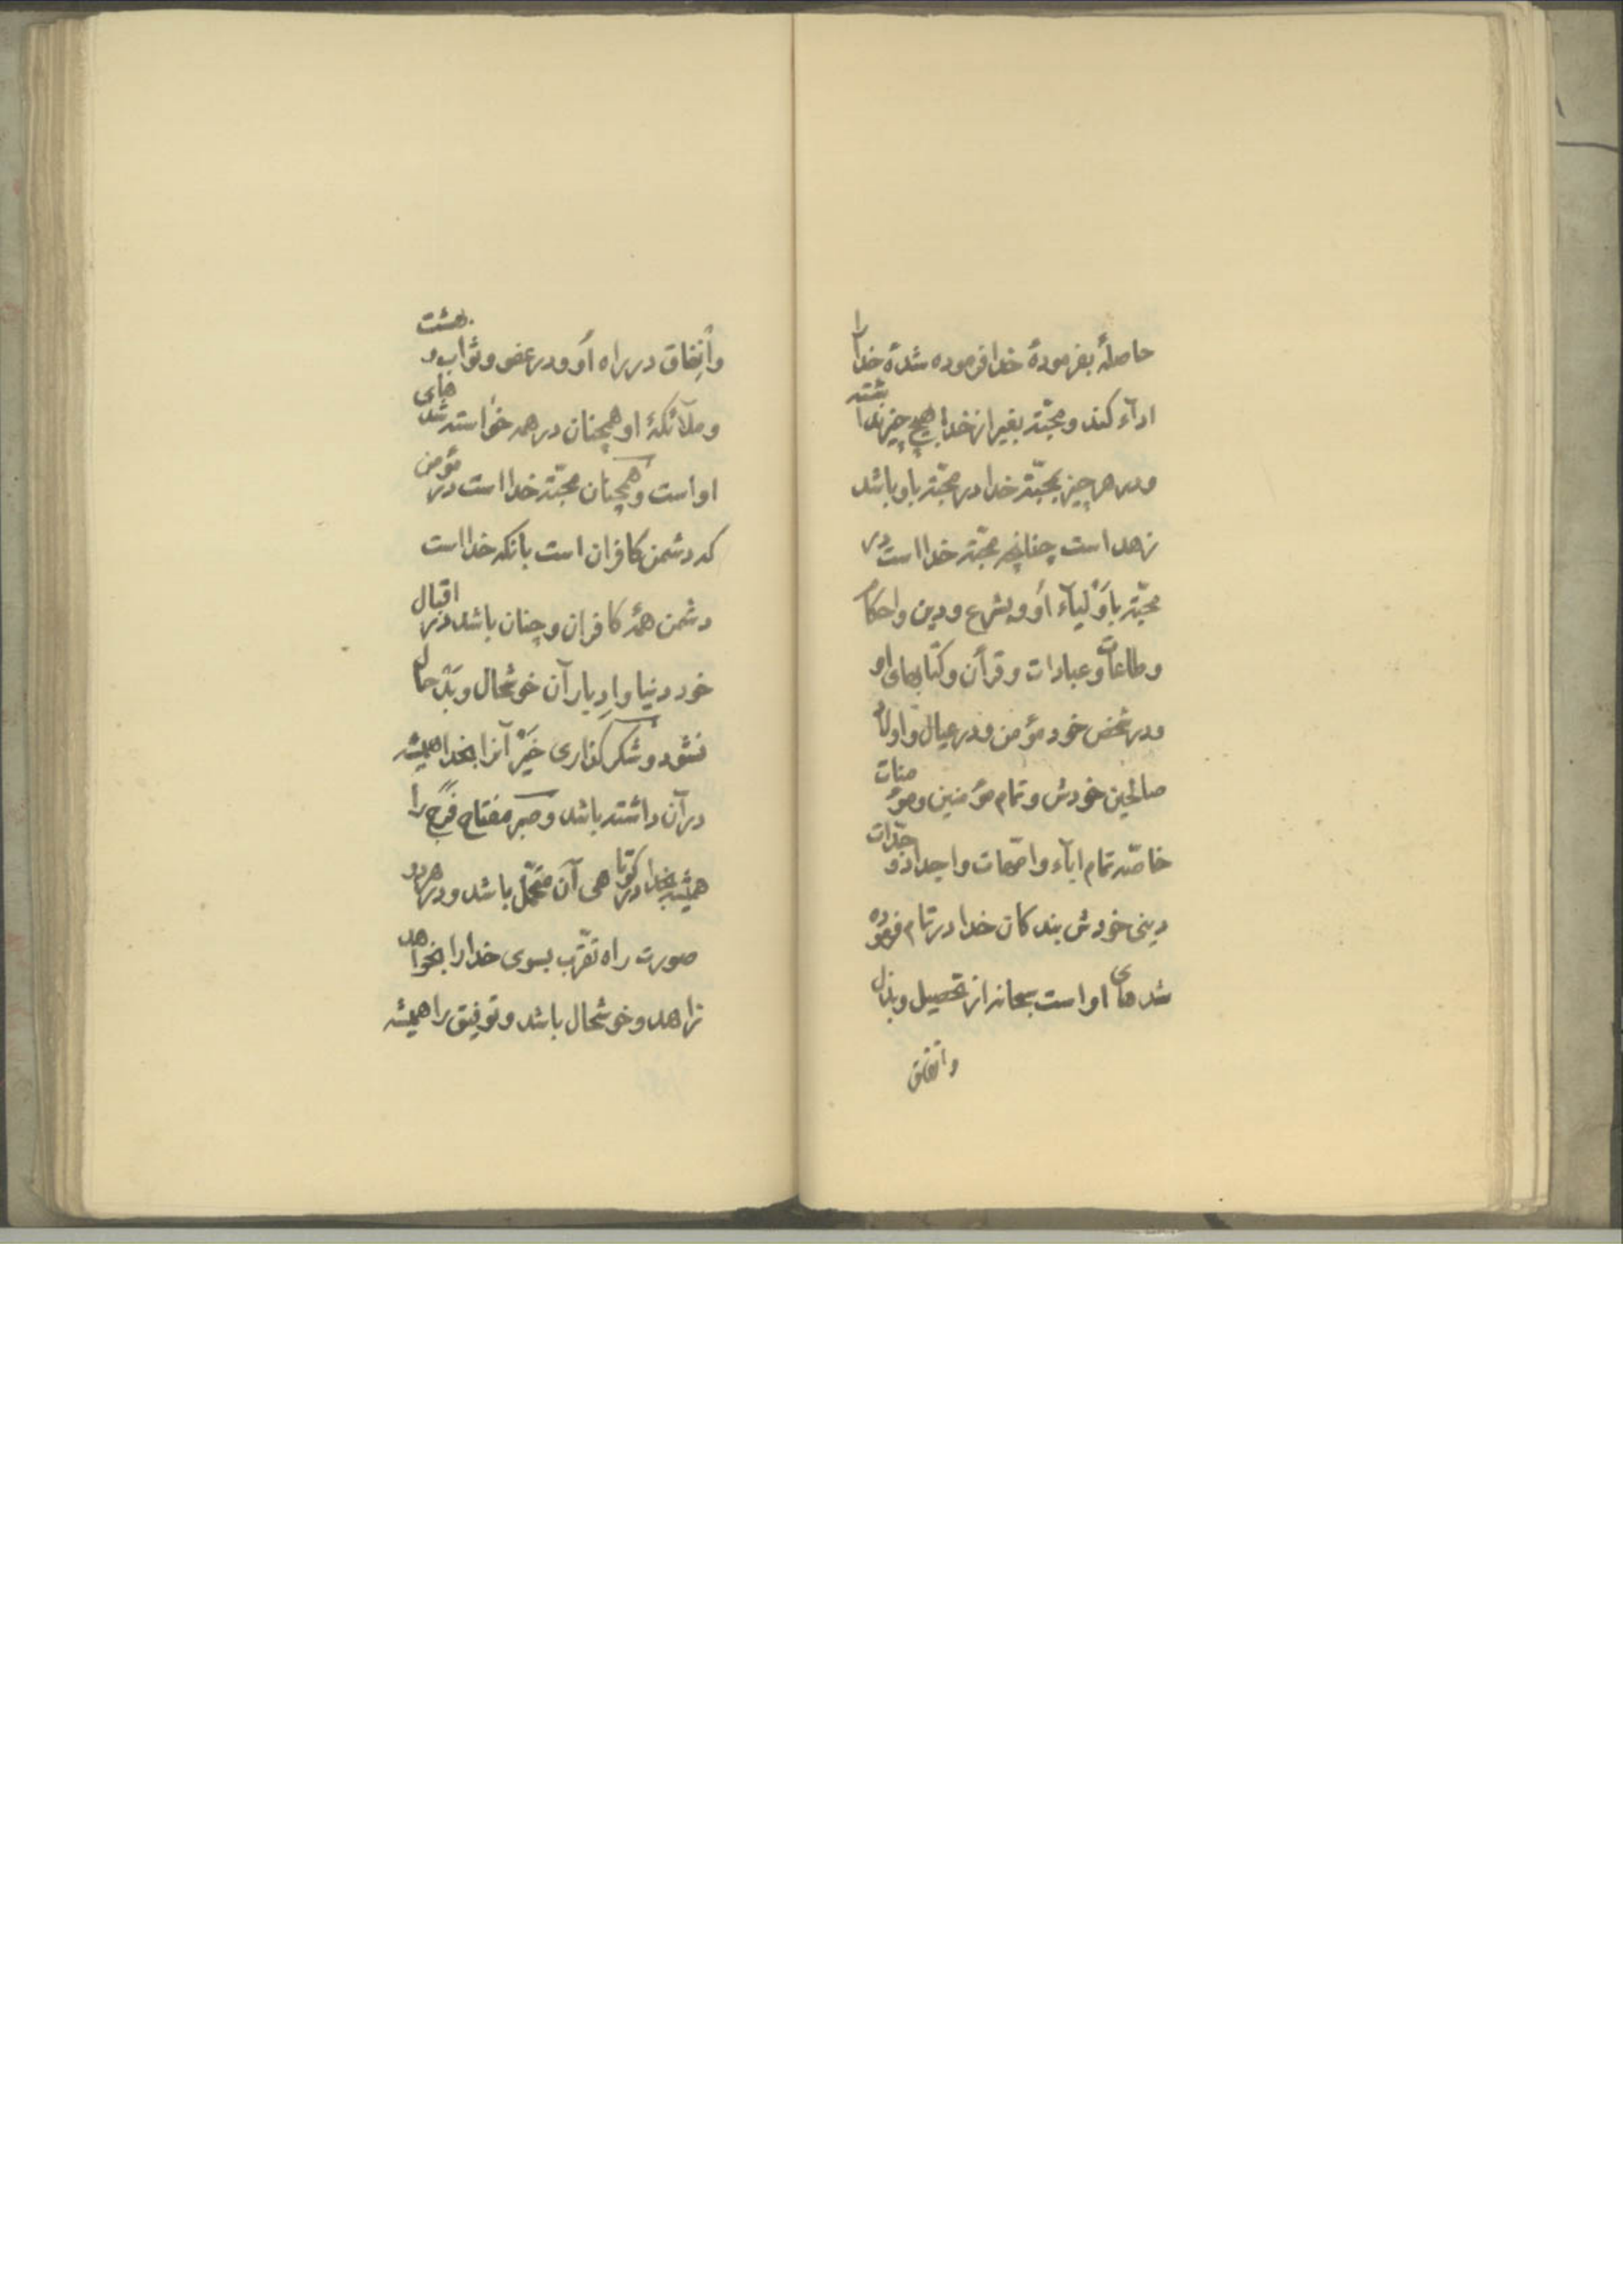 حاصلهٔ بفرمودهٔ خدا فرموده شدهٔ خدا را
ادآء کند و محبّته بغیر از خدا بهیچ چیز نداشته
و در هر چیز بمحبّته خدا در محبّته باو باشد
زهد است چنانچه محبّته خدا است در
محبّته باَوْلیآء اَو و بشرع و دین و احکام
و طاعات و عبادات و قرآن و کتابهای او
و در شخص خود مؤمن و در عیال و اولاد
صالحین خودش و تمام مؤمنین و مؤمنات
خاصّه تمام ابآء و امّهات و اجداد و جدّات
دینی خودش بندکان خدا در تمام فرموده
شدهای او است سبحانه از تحصیل و بذل
و انفاق
و اِنفاق در راه اَو و در عفو و ثواب و بهشت
و ملآئکهٔ او همچنان در همه خواسته شدهای
او است و همچنان محبّته خدا است در مؤمن
که دشمن کافران است بانکه خدا است
دشمن همهٔ کافران و چنان باشد در اقبال
خود دنیا و اِدبار آن خوشحال و بَدْ حال
نشود و شکرکذاری خَیْر آنرا بخدا همیشه
در آن داشته باشد و صبر مفتاح فَرَج را
همیشه بخدا در کوتاهی آن متحمّل باشد و در هر دو
صورت راه تقرّب بسوی خدا را بخواهد
زاهد و خوشحال باشد و توفیق را همیشه